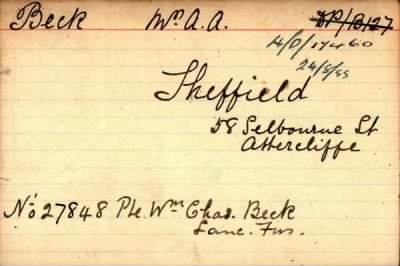 Beck Mr. A.A. DP/B127
4/D/17460
24/5/55
Sheffield
58 Selbourne St
Attercliffe
No 27848 Pte Wm Chas. Beck
Lanc. Fus.